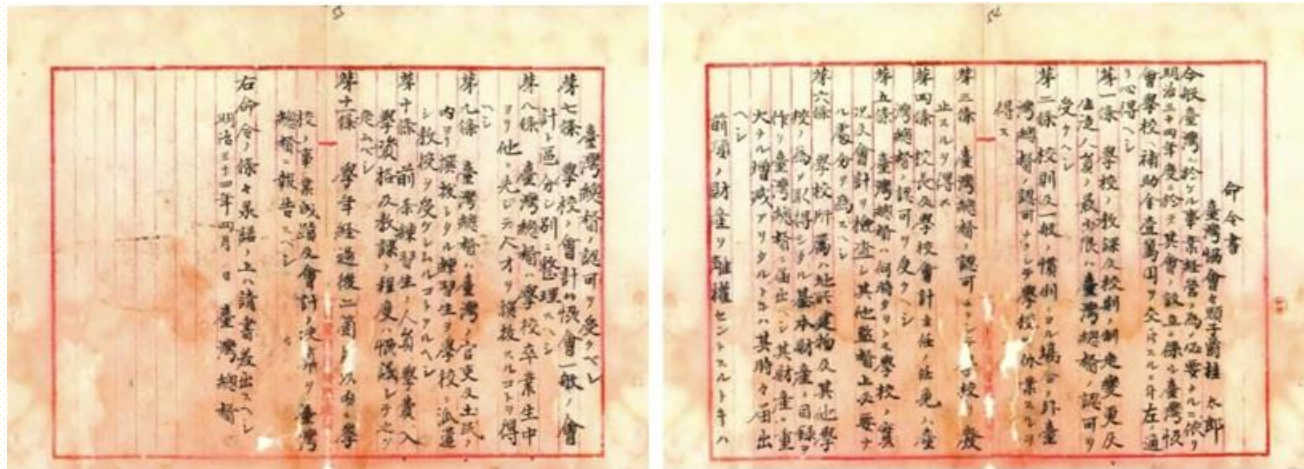 命令書
臺灣協會々頭子爵桂太郎
今般臺灣ニ於ケル事業経営ノ為必要ナルニ依リ
明治三十四年度ニ於テ其會ノ設立ニ係ル臺灣協
會學校ヘ補助金壹萬円ヲ交付スルニ付左ノ通
リ心得ヘシ
第一條 學校ノ教課及校則ノ制定変更及
生徒人員ノ最少限ハ臺灣總督ノ認可ヲ
受クヘシ
第二條 校則及一般ノ慣例ニ依ル場合ノ外臺
灣總督ノ認可ナクシテ學校ノ休業スルヲ
得ス
第三條 臺灣總督ノ認可ナクシテ學校ヲ廢
止スルヲ得ス
第四條 校長及學校會計主任ノ任免ハ臺
灣總督ノ認可ヲ受クヘシ
第五條 臺灣總督ハ何時タリトモ學校ノ實
況及會計ヲ檢査シ其他監督上必要ナ
ル處分ヲ為スヘシ
第六條 學校所属ノ地所建物及其他學
校ノ為メ取得シタル基本財産ノ目録ヲ
作リ臺灣總督ニ届出ヘシ其財産ニ重
大ナル増減アリタルトキハ其時々届出
ヘシ
前項ノ財産ヲ離権セントスルトキハ
臺灣總督ノ認可ヲ受クヘシ
第七條 學校ノ會計ハ協會一般ノ會
計ト區分シ別ニ整理スヘシ
第八條 臺灣總督ハ學校卒業生中
ヨリ他ニ先シテ人才ヲ採抜スルコトヲ得
ヘシ
第九條 臺灣總督ハ臺灣ノ官吏及土民ノ
内ヨリ撰抜シタル練習生ヲ學校ニ派遣
シ教授ヲ受ケシムルコトアルヘシ
第十條 前条練習生ノ人員學費入
學資格及教課ノ程度ハ協議シテ之ヲ
定ムヘシ
第十一條 學年経過後二箇月以内ニ學
校ノ事業成蹟及會計ノ決算ヲ臺灣
總督ニ報告スヘシ
右命令ノ條々承諾ノ上ハ請書差出スヘシ
明治三十四年四月 日 臺灣總督